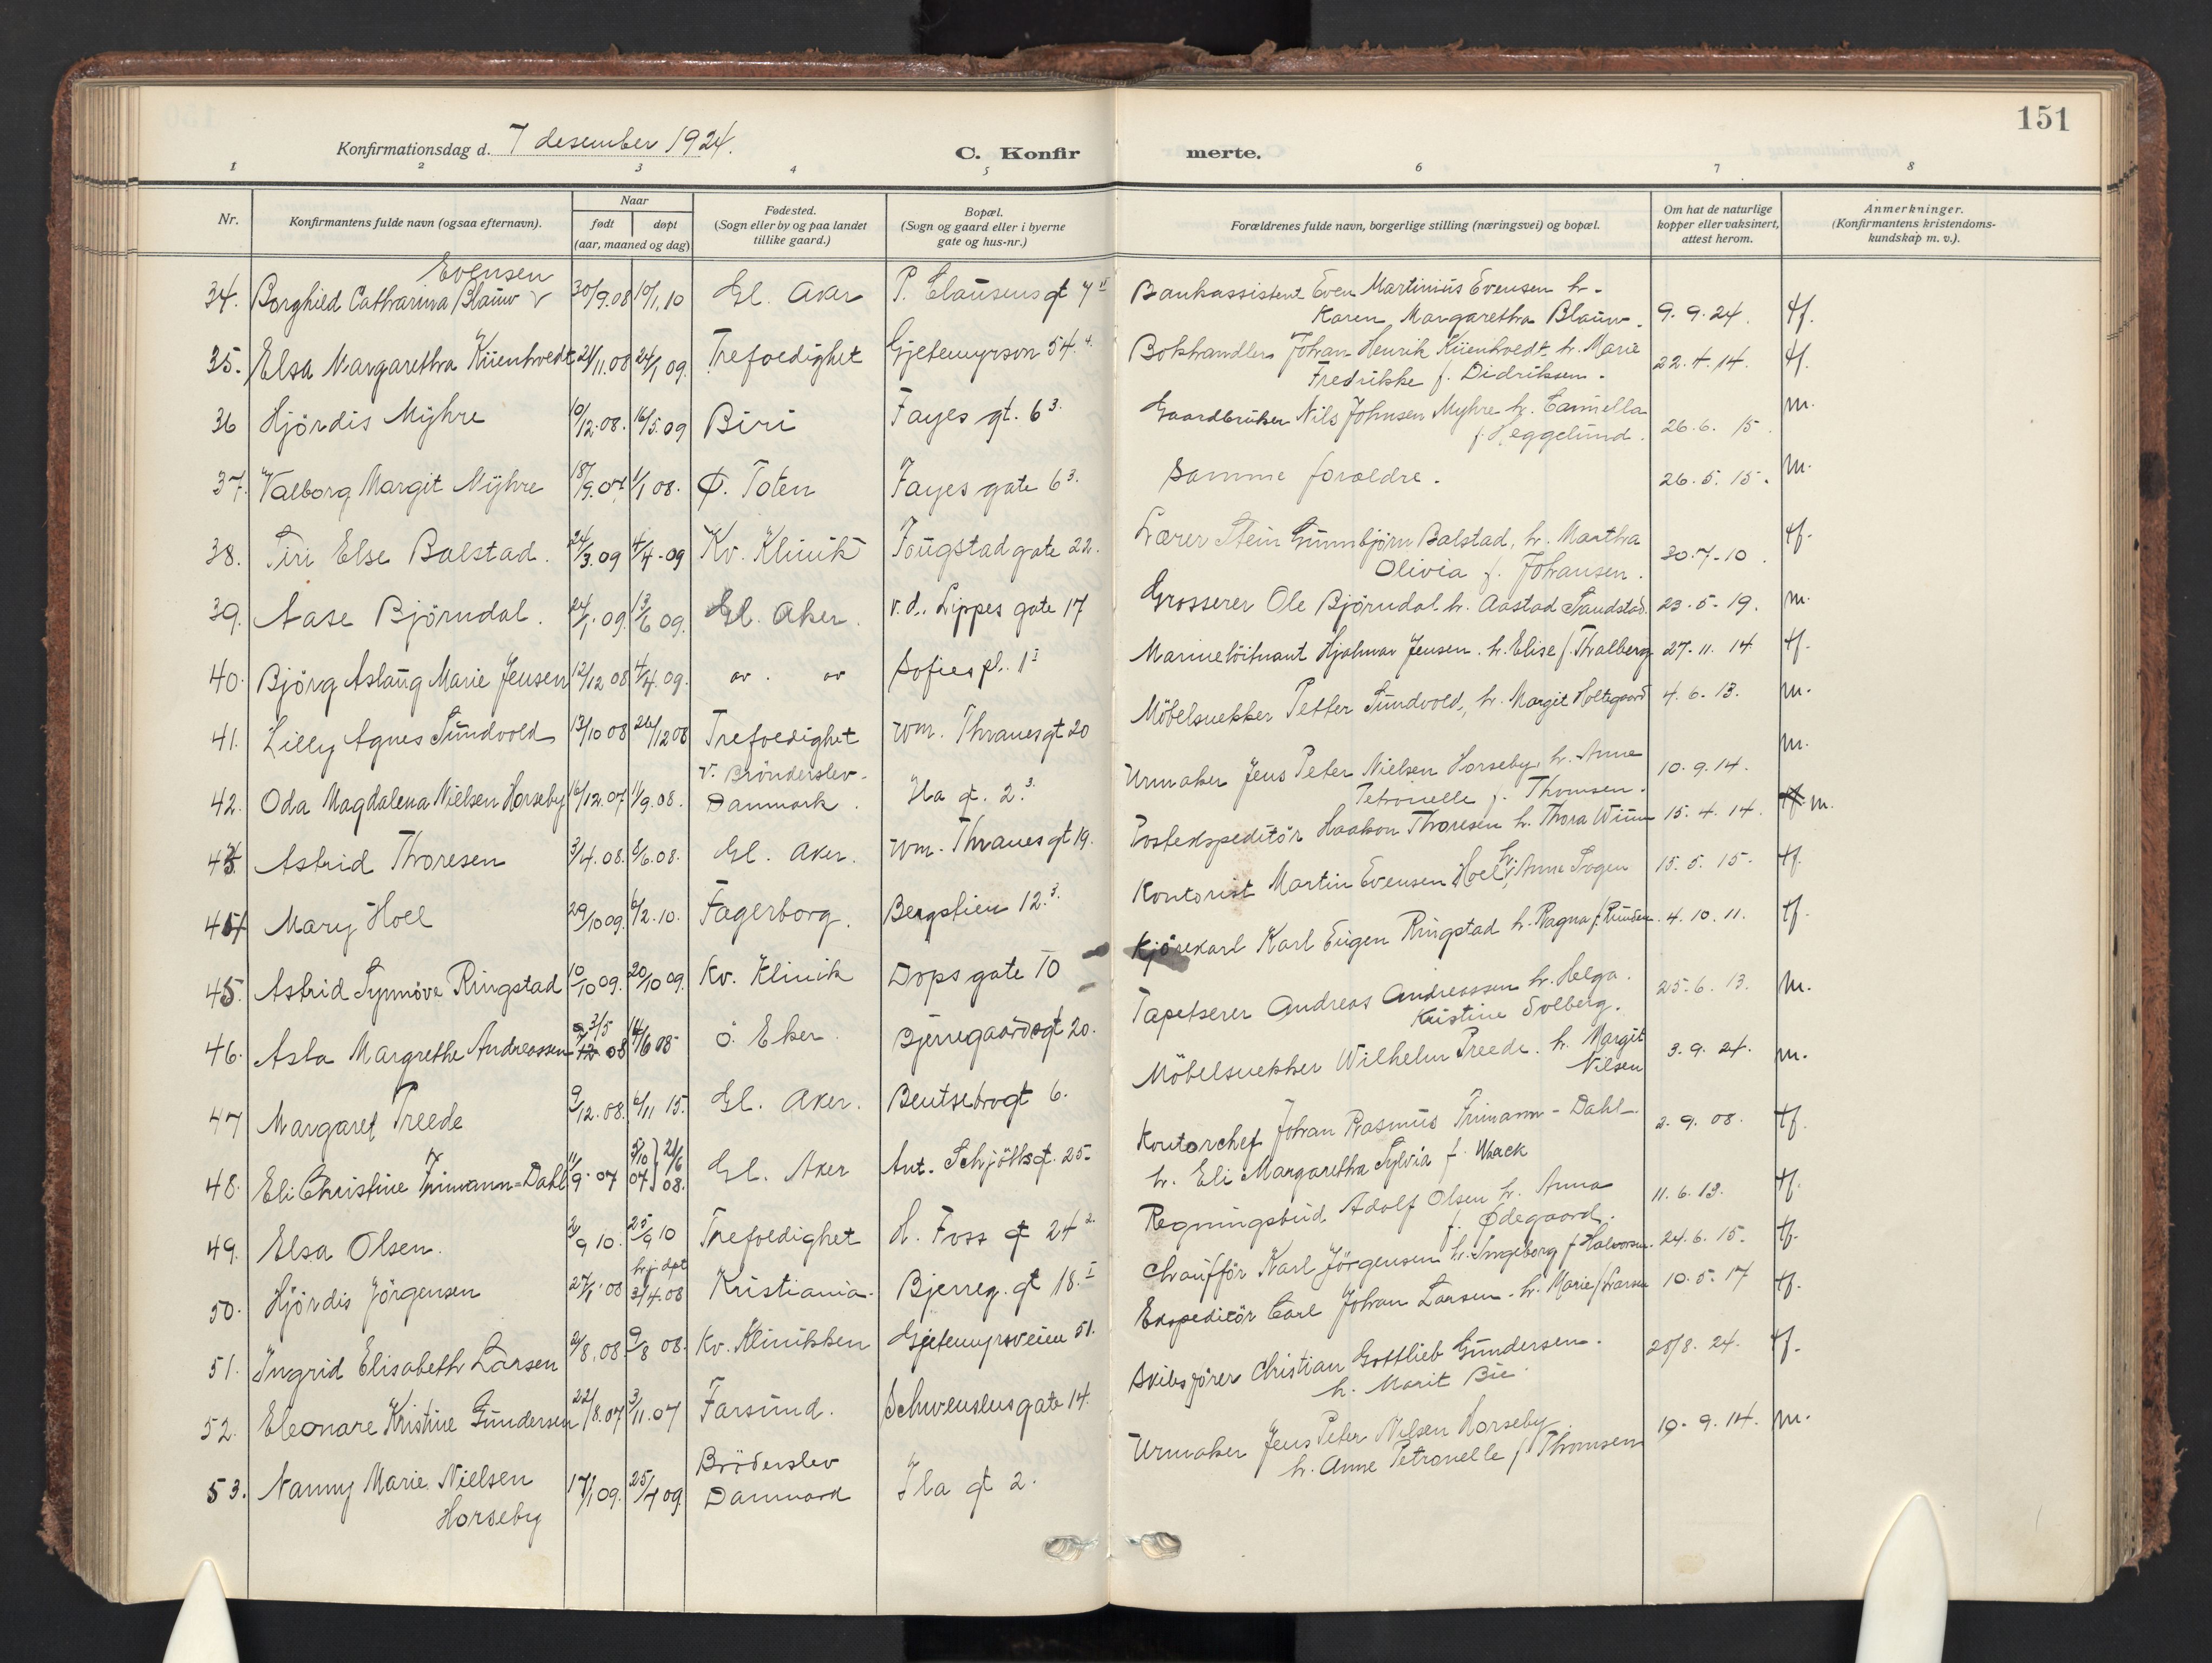 151
Konfirmationsdag d. 7 desember 1924.
C. Konfir merte.
1 2 3 4 5 6 7 8
Nr. Konfirmantens fulde navn (ogsaa efternavn). Naar født døpt (aar, maaned og dag) Fødested. (Sogn eller by og paa landet tillike gaard.) Bopæl. (Sogn og gaard eller i byerne gate og hus-nr.) Forældrenes fulde navn, borgerlige stilling (næringsvei) og bopæl. Om hat de naturlige kopper eller vaksinert, attest herom. Anmerkninger. (Konfirmantens kristendoms-kundskap m. v.).
Evensen
34. Borghild Catharina Blauw 30/9.08 10/1,10 Gl. Aker P. Clausens gt 7 II Bankassistent Even Martinius Evensen h. 9.9.24. tf.
Karen Margaretha Blauw.
35. Elsa Margaretha Küenholdt 21/11.08 24/1 09. Trefoldighet Gjetemyrsvn 54.4. Bokhandler Johan Henrik Küenholdt h. Marie 22.4.14. tf.
Fredrikke f. Didriksen.
36 Hjördis Myhre 10/12.08. 16/5.09 Biri Fayes gt. 6 3. Gaardbruker Nils Johnsen Myhre h. Camella 26.6. 15. m.
f. Heggelund.
37. Valborg Margit Myhre 18/9.07 1/1 08. Ø. Toten Fayes gate 6 3. Samme forældre. 26.5.15. m.
38. Siri Else Balstad. 24/3.09 4/4-09 Kv. Klinik Fougstad gate 22. Lærer Stein Gunnbjörn Balstad, h. Martha 30.7-10. tf.
Olivia f. Johansen.
39. Aase Björndal. 24/1.09. 13/6 09. Gl. Aker. v.d. Lippes gate 17 Grosserer Ole Björndal h. Aastad Sandstad. 23.5.19. m.
40. Björg Aslaug Marie Jensen 12/12 08 4/4 09. " " Sofies pl. 1 I Marinelöitnant Hjalmar Jensen. h. Elise f. Thalberg 27.11.14 tf.
41. Lilly Agnes Sundvold 13/10 08 26/12 08 Trefoldighet Wm. Thranes gt 20 Möbelsnekker Petter Sundvold, h. Margit Holtegaard 4.6.13. m.
42. Oda Magdalena Nielsen Horseby 16/12.07 11/9.08. V. Brönderslev Danmark. Ila gt. 2.3. Urmaker Jens Peter Nielsen Horseby, h. Anne 10.9.14. m.
Petronelle f. Thomsen.
43 Astrid Thoresen 3/4.08. 8/6.08. Gl. Aker. Wm. Thranes gt 19. Postekspeditör Haakon Thoresen h. Thora Winn 15.4.14. m.
44 Mary Hoel 29/10 09. 6/2.10. Fagerborg. Bergstien 12.3. Kontorist Martin Evensen Hoel, h. Anne Sogen 15.5.15. tf.
45. Astrid Synnöve Ringstad 10/10 09. 20/10 09. Kv. Klinik Dops gate 10 Kjörekarl Karl Eugen Ringstad h. Ragna f. Runden. 4.10.11. tf.
46. Asta Margrethe Andreassen 3/5 12 08 14/6 08 Ö. Eker. Bjerregaardsgt 20. Tapetserer Andreas Andreassen h. Helga. 25.6.13. m.
Kristine Solberg.
47 Margaret Preede 9/12.08. 6/11 15. Gl. Aker. Bentsebrogt 6. Möbelsnekker Wilhelm Preede. h. Margit 3.9.24. m.
Nilsen
48. Eli Christine Frimann=Dahl 11/9.07 5/10 07 } 21/6 08. Gl. Aker Ant. Schjöttsgt. 25. Kontorchef Johan Rasmus Frimann-Dahl 2.9.08. tf.
h. Eli Margaretha Sylvia f. Waack
49. Elsa Olsen. 2/9 10. 25/9 10 Trefoldighet H. Foss gt 24 2. Regningsbud Adolf Olsen h. Anna 11.6.13. tf.
f. Ødegaard.
50. Hjördis Jörgensen 27/1.08 hj. dpt 3/4.08 Kristiania. Bjerreg. gt 18. I Chaufför Karl Jörgensen h. Ingeborg f Halvorsen. 24.6.15. tf.
51. Ingrid Elisabeth Larsen 2/8.08. 9/8 08. Kv. Klinikken Gjetemyrsveien 51. Ekspeditör Carl Johan Larsen. h. Marie f Larsen 10.5.17 tf.
52. Eleonare Kristine Gundersen 22/8.07 3/11.07 Farsund. Schwenslus gate 14. Skibsförer Christian Gottlieb Gundersen. 28/8. 24. tf.
h. Marit Bie.
53. Nanny Marie Nielsen 17/1 09. 25/4 09. Bröderslev Danmark Ila gt 2. Urmaker Jens Peter Nilsen Horseby. 19.9.14. m.
Horseby h. Anne Petronelle f Thomsen